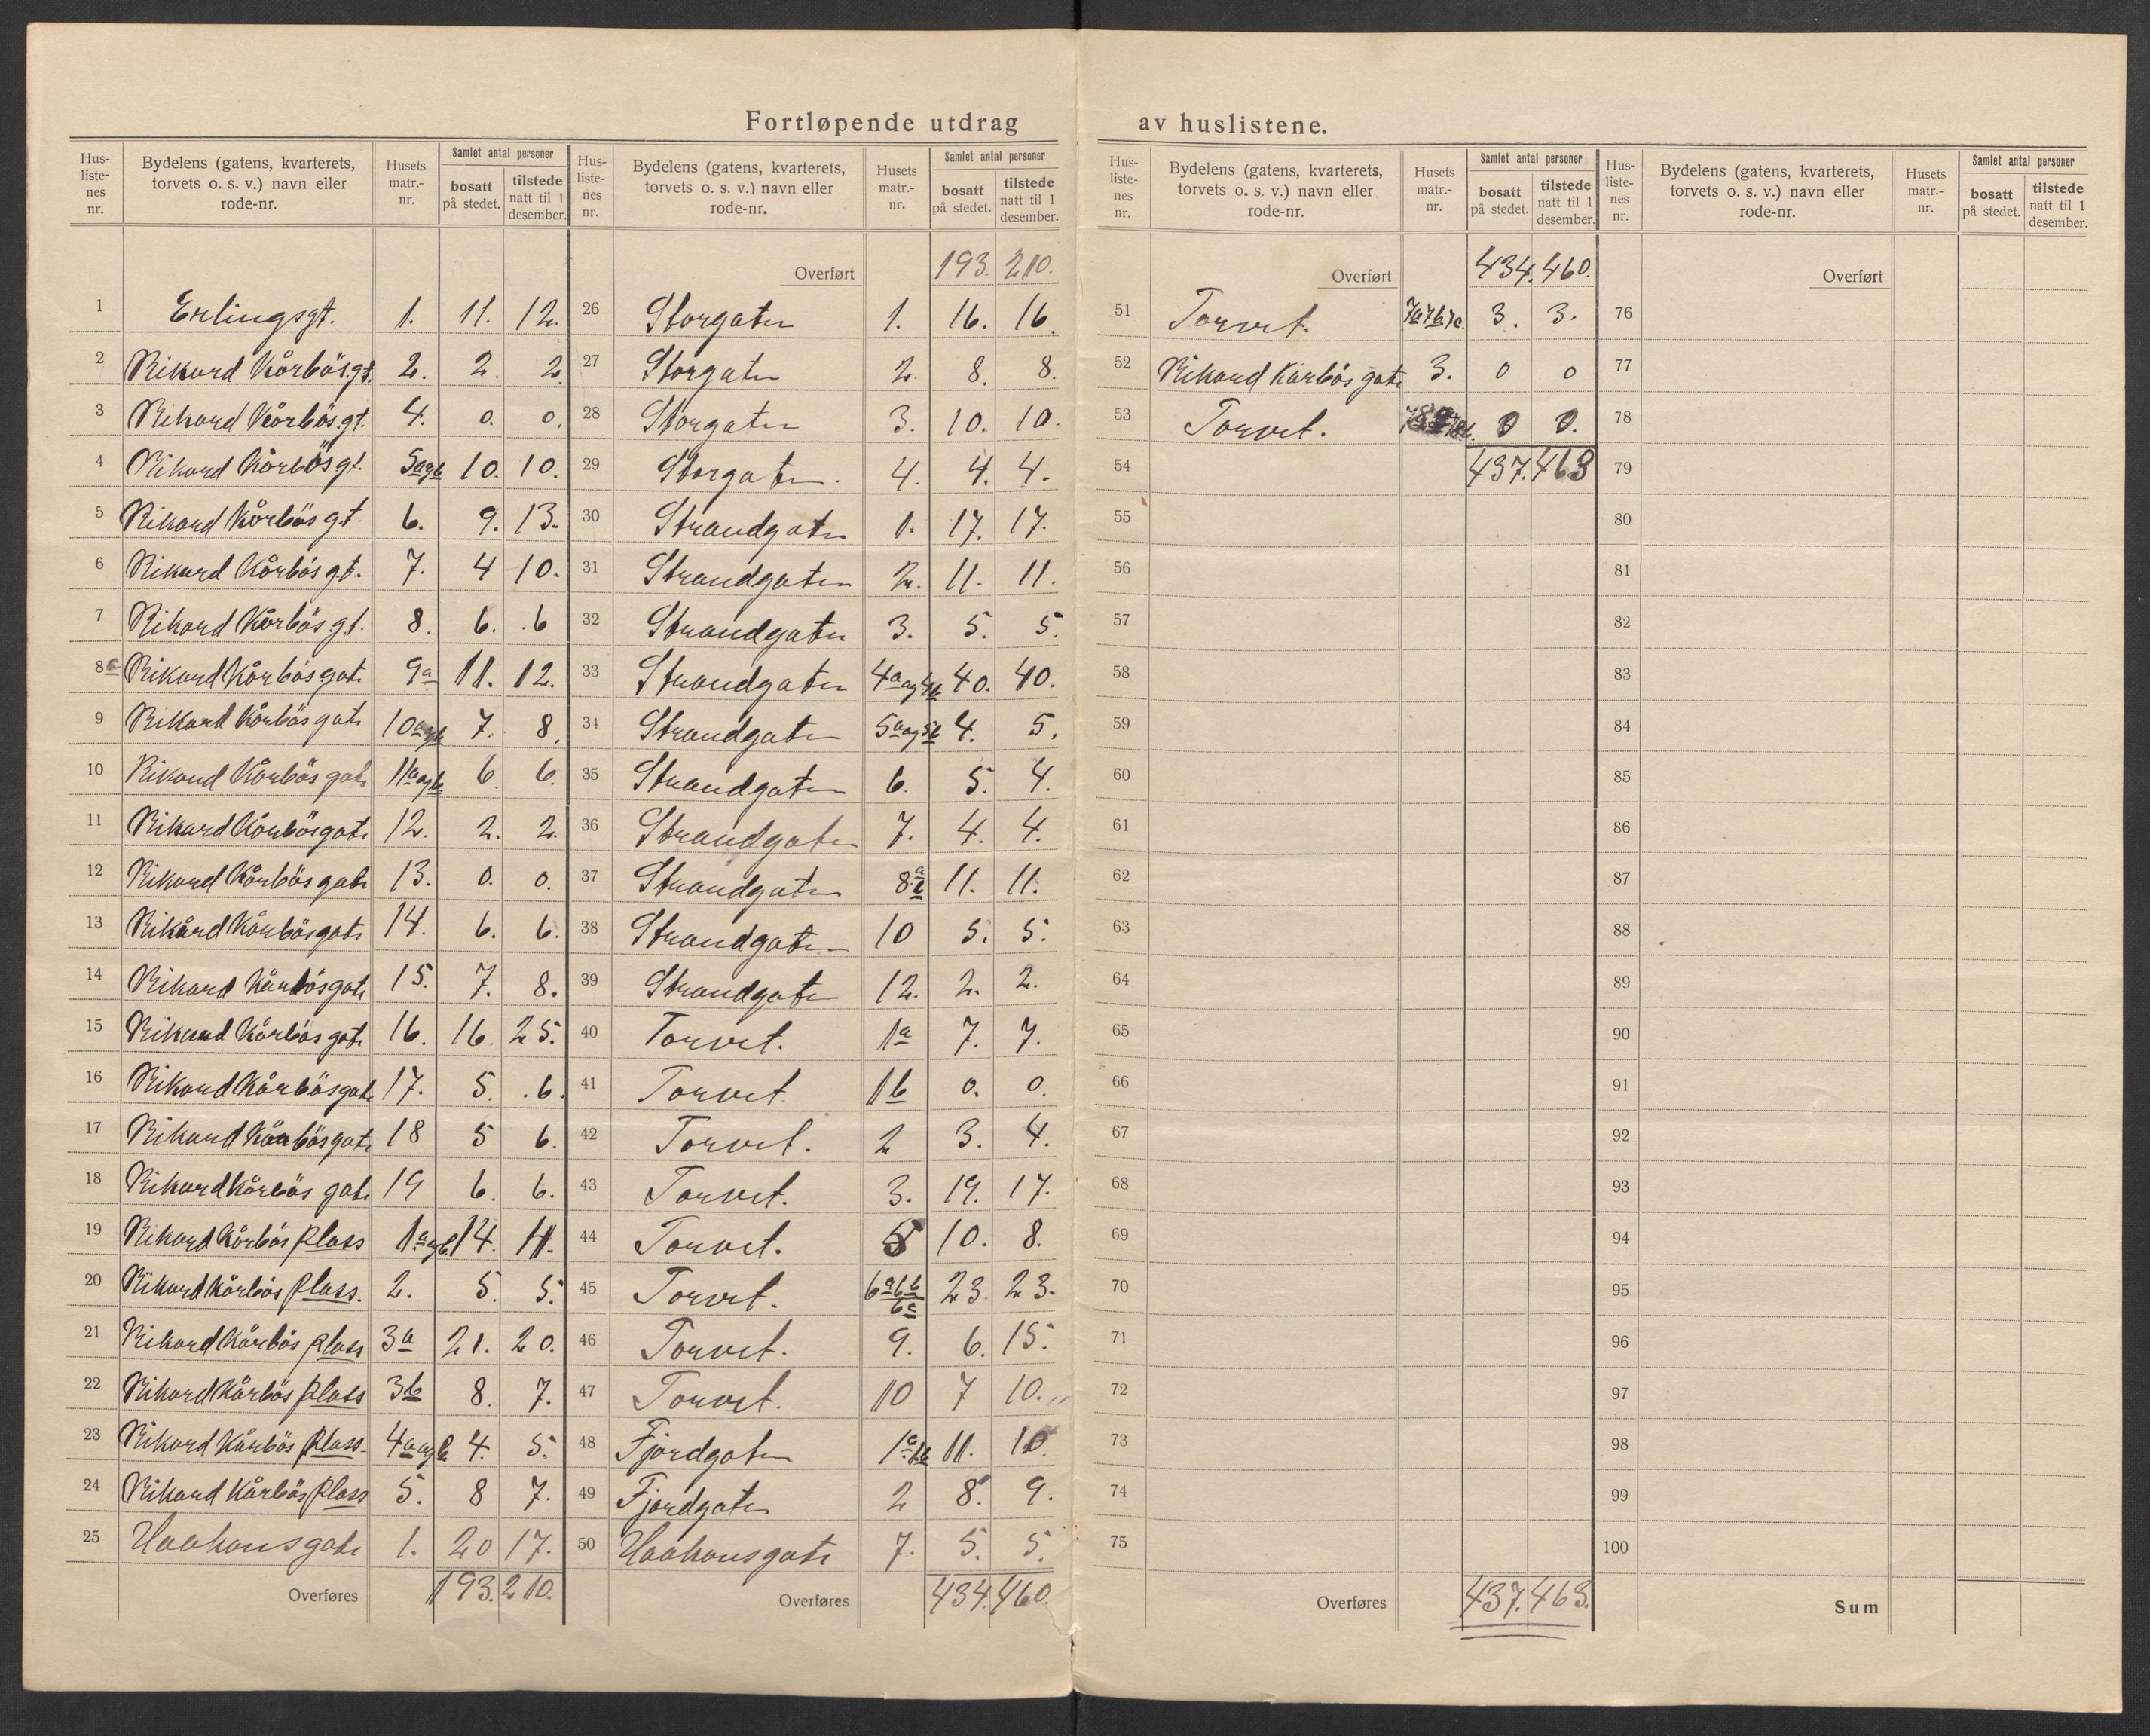 Fortløpende utdrag av huslistene.
Hus-listenes nr. | Bydelens (gatens, kvarterets, torvets o. s. v.) navn eller rode-nr. | Husets matr.-nr. | Samlet antal personer bosatt på stedet. | tilstede natt til 1 desember.
1 Erlingsgt. 1. 11. 12.
2 Rikard Kårbös.gt. 2. 2. 2.
3 Rikard Kårbösgt. 4. 0. 0.
4 Rikard Kårbösgt. 5aogb 10. 10.
5 Rikard Kårbösgt 6. 9. 13.
6 Rikard Kårbösgt. 7. 4 10.
7 Rikard Kårbösgt. 8. 6. 6
8 Rikard Kårbösgate 9a 11. 12.
9 Rikard Kårbösgate 10aogb 7. 8.
10 Rikard Kårbösgate 11aogb 6 6.
11 Rikard Kårbösgate 12. 2. 2.
12 Rikard Kårbösgate 13. 0. 0.
13 Rikard Kårbösgate 14. 6. 6.
14 Rikard Kårbösgate 15. 7. 8.
15 Rikard Kårbösgate 16. 16. 25.
16 Rikard Kårbösgate 17. 5. 6.
17 Rikard Kårbösgate 18 5 6.
18 Rikard Kårbös gate 19 6. 6.
19 Rikard Kårbös Plass 1aogb 14. 11.
20 Rikard Kårbös Plass. 2. 5. 5.
21 Rikard Kårbös plass 3a 21. 20.
22 Rikard Kårbös plass 3b 8. 7.
23 Rikard Kårbös Plass. 4aogb 4. 5.
24 Rikard Kårbös Plass 5. 8 7.
25 Haakonsgate 1. 20 17.
Overføres 193. 210.
Hus-listenes nr. | Bydelens (gatens, kvarterets, torvets o. s. v.) navn eller rode-nr. | Husets matr.-nr. | Samlet antal personer bosatt på stedet. | tilstede natt til 1 desember.
Overført 193. 210.
26 Storgaten 1. 16. 16.
27 Storgaten 2. 8. 8.
28 Storgaten 3. 10. 10.
29 Storgaten. 4. 4. 4.
30 Strandgaten 1. 17. 17.
31 Strandgaten 2. 11. 11.
32 Strandgaten 3. 5. 5.
33 Strandgaten 4aog4b 40. 40.
34 Strandgaten 5aog5b 4. 5.
35 Strandgaten 6. 5. 4.
36 Strandgaten 7. 4. 4.
37 Strandgaten 8 a b 11. 11.
38 Strandgaten 10 5. 5.
39 Strandgaten 12. 2. 2.
40 Torvet. 1a 7. 7.
41 Torvet 1b 0. 0.
42 Torvet. 2 3. 4.
43 Torvet. 3. 19. 17.
44 Torvet. 5 10. 8.
45 Torvet. 6a6b6c 23. 23.
46 Torvet. 9. 6. 15.
47 Torvet. 10 7 10.
48 Fjordgaten 1a1b 11. 10.
49 Fjordgaten 2 8. 9.
50 Haakonsgate 7. 5. 5.
Overføres 434. 460.
Hus-listenes nr. | Bydelens (gatens, kvarterets, torvets o. s. v.) navn eller rode-nr. | Husets matr.-nr. | Samlet antal personer bosatt på stedet. | tilstede natt til 1 desember.
Overført 434. 460.
51 Torvet. 7a7b7c. 3. 3.
52 Rikard Kårbös gate 3. 0 0
53 Torvet. 0 0.
54 437. 463
55
56
57
58
59
60
61
62
63
64
65
66
67
68
69
70
71
72
73
74
75
Overføres 437. 463.
Hus-listenes nr. | Bydelens (gatens, kvarterets, torvets o. s. v.) navn eller rode-nr. | Husets matr.-nr. | Samlet antal personer bosatt på stedet. | tilstede natt til 1 desember.
Overført
76
77
78
79
80
81
82
83
84
85
86
87
88
89
90
91
92
93
94
95
96
97
98
99
100
Sum